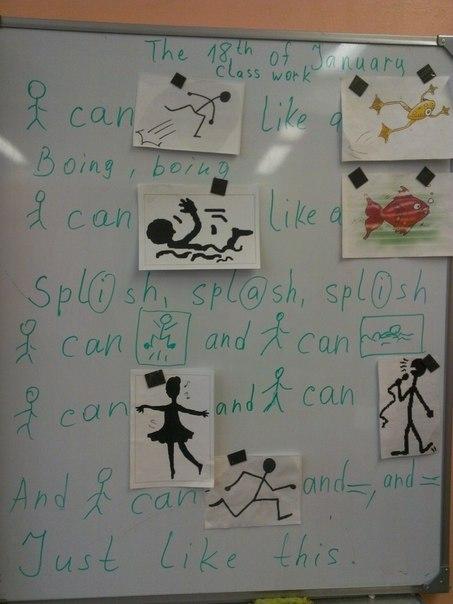 The 18th of January
class work
can like a
Boing, boing
can like a
Splish, splash, splish
can and can
can and can
And can and=, and=
Just like this.